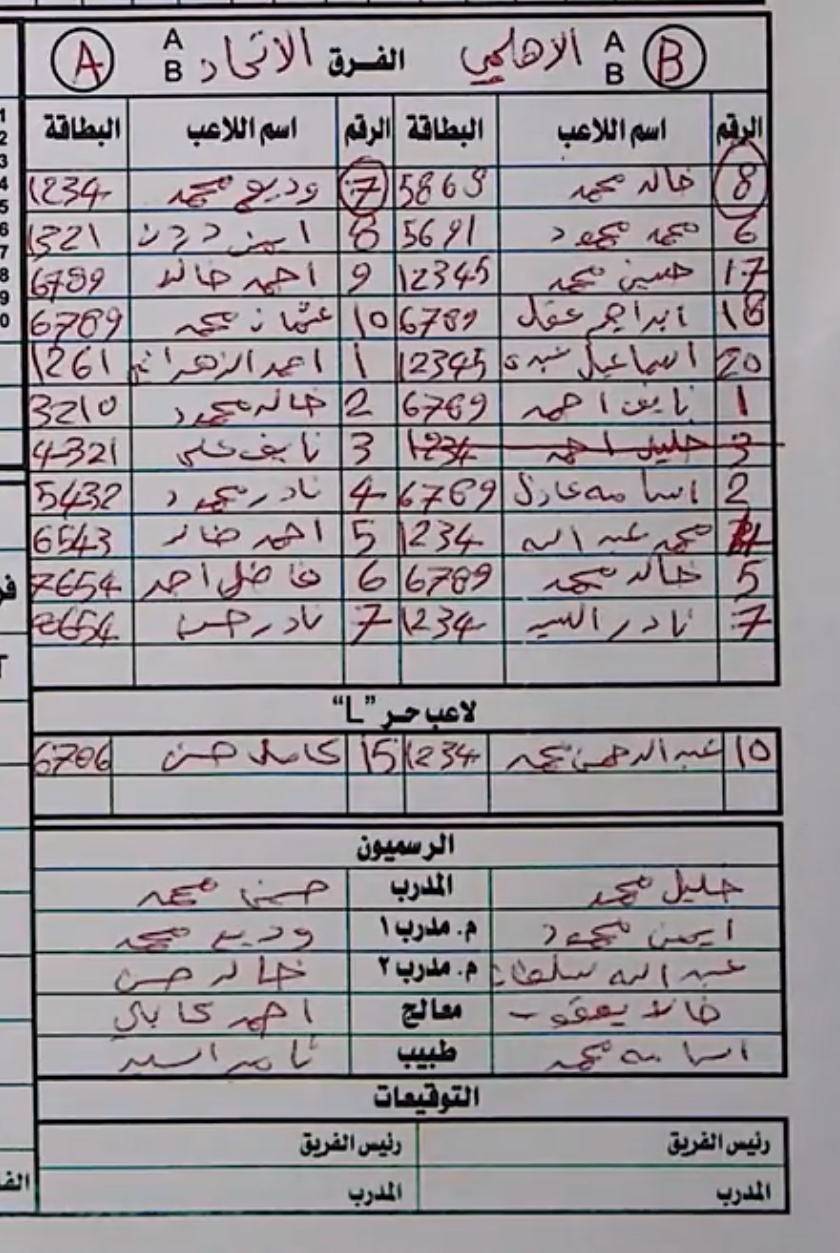 B A B الأهلي الفرق الاتحاد A B A
الرقم اسم اللاعب البطاقة الرقم اسم اللاعب البطاقة
8 خالد محمد 5869 7 وديع محمد 1234
6 محمد محمود 5691 8 1321
17 حسين محمد 12345 9 احمد خالد 6789
18 ابراهيم عقل 6789 10 عثمان محمد 6789
20 اسماعيل 12345 1 احمد الزهراني 1261
1 نايف احمد 6789 2 خالد محمود 3210
3 خليل احمد 1234 3 نايف علي 4321
2 اسامه عادل 6789 4 نادر محمود 5432
محمد عبد الله 1234 5 احمد خالد 6543
5 خالد محمد 6789 6 فاضل احمد 7654
7 نادر السيد 1234 7 نادر حسن 7654
لاعب حر "L"
10 عبد الرحمن محمد 1234 15 كامل حسن 6706
الرسميون
خليل محمد المدرب حسني محمد
ايمن محمود م. مدرب ١ وديع محمد
عبد الله سلطان م. مدرب ٢ خالد حسن
خالد يعقوب معالج احمد
اسامه محمد طبيب تامر السيد
التوقيعات
رئيس الفريق رئيس الفريق
المدرب المدرب